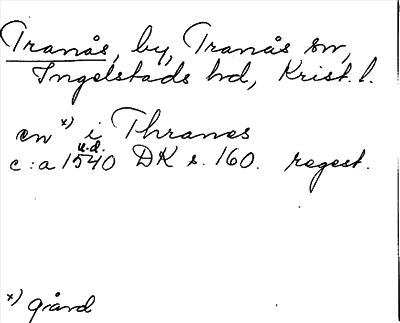 Tranås, by, Tranås sn,
Ingelstads hd, Krist. l.
en x) i Thranes
u.d.
c:a 1540 DK s. 160. regest.
x) gård